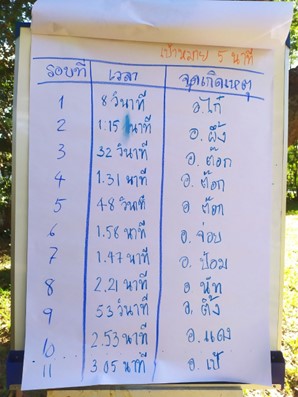 เป้าหมาย 5 นาที
รอบที่ เวลา จุดเกิดเหตุ
1 8 วินาที อ.ไก่
2 1.15 นาที อ. ผึ้ง
3 32 วินาที อ. ต๊อก
4 1.31 นาที อ. ต๊อก
5 48 วินาที อ. ต๊อก
6 1.58 นาที อ. จ่อย
7 1.47 นาที อ. ป้อม
8 2.21 นาที อ. นัท
9 53 วินาที อ. ติ๋ง
10 2.53 นาที อ. แดง
11 3.05 นาที อ. เป้